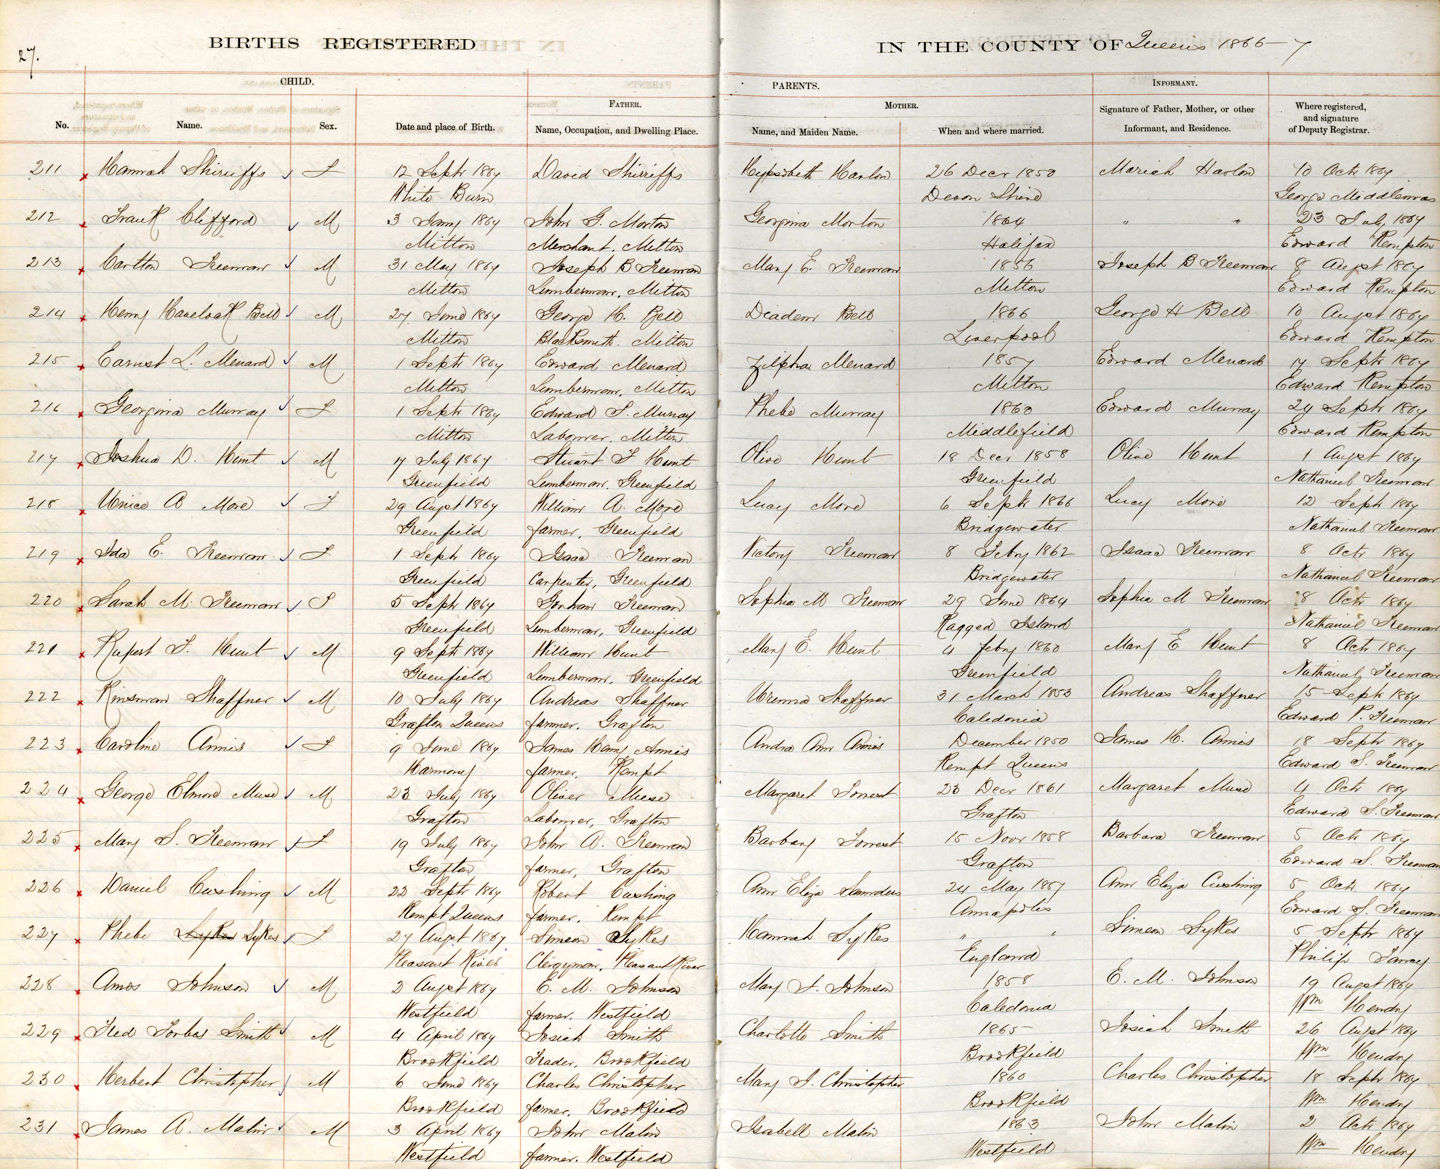 27.
BIRTHS REGISTERED IN THE COUNTY OF Queens 1866-7
CHILD. PARENTS. INFORMANT.
FATHER. MOTHER. Signature of Father, Mother, or other Where registered, and signature
No. Name. Sex. Date and place of Birth. Name, Occupation, and Dwelling Place. Name, and Maiden Name. When and where married. Informant, and Residence. of Deputy Registrar.
211 Hannah Shirriffs F 12 Septr 1867 David Shirriffs Hepzibeth Harlow 26 Decr 1850 Mariah Harlow 10 Octr 1867
White Burn Devon Shire George Middlemas
212 Frank Clifford M 3 Jany 1867 John G. Morton Georgina Morton 1864 " " 23 July 1867
Milton Merchant, Milton Halifax Edward Kempton
213 Carlton Freeman M 31 May 1867 Joseph B Freeman Mary E. Freeman 1856 Joseph B Freeman 8 Augst 1867
Milton Lumberman, Milton Milton Edward Kempton
214 Henry Havelock Bell M 27 June 1867 George H. Bell Diadem Bell 1866 George H Bell 10 Augst 1867
Milton Blacksmith, Milton Liverpool Edward Kempton
215 Earnst L. Menard M 1 Septr 1867 Edward Menard Zilpha Menard 1857 Edward Menard 17 Septr 1867
Milton Lumberman, Milton Milton Edward Kempton
216 Georgina Murray F 1 Septr 1867 Edward S. Murray Phebe Murray 1860 Edward Murray 24 Septr 1867
Milton Labourer, Milton Middlefield Edward Kempton
217 Joshua D. Hunt M 17 July 1867 Stuart F Hunt Olive Hunt 18 Decr 1858 Olive Hunt 1 Augst 1867
Greenfield Lumberman, Greenfield Greenfield Nathaniel Freeman
218 Unice A More F 29 Augst 1867 William A. More Lucy More 6 Septr 1866 Lucy More 12 Septr 1867
Greenfield farmer, Greenfield Bridgewater Nathaniel Freeman
219 Ida E. Freeman F 1 Septr 1867 Isaac Freeman Victory Freeman 8 Feby 1862 Isaac Freeman 8 Octr 1867
Greenfield Carpenter, Greenfield Bridgewater Nathaniel Freeman
220 Sarah M. Freeman F 5 Septr 1867 Gorham Freeman Sophia M Freeman 29 June 1864 Sophia M Freeman 8 Octr 1867
Greenfield Lumberman, Greenfield Ragged Island Nathaniel Freeman
221 Rupert F. Hunt M 9 Septr 1867 William Hunt Mary E. Hunt 4 Feby 1860 Mary E Hunt 8 Octr 1867
Greenfield Lumberman, Greenfield Greenfield Nathaniel Freeman
222 Kinsman Shaffner M 10 July 1867 Andreas Shaffner Urenna Shaffner 31 March 1853 Andreas Shaffner 15 Septr 1867
Grafton Queens farmer, Grafton Caledonia Edward P. Freeman
223 Caroline Annis F 9 June 1867 James Henry Annis Andra Ann Annis December 1850 James H. Annis 18 Septr 1867
Harmony farmer, Kempt Kempt Queens Edward S. Freeman
224 George Elmore Muse M 23 July 1867 Oliver Muse Margaret Forrest 23 Decr 1861 Margaret Muse 4 Octr 1867
Grafton Labourer, Grafton Grafton Edward S. Freeman
225 Mary S. Freeman F 19 July 1867 John A. Freeman Barbary Forrest 15 Novr 1858 Barbara Freeman 5 Octr 1867
Grafton farmer, Grafton Grafton Edward S. Freeman
226 Daniel Cushing M 22 Septr 1867 Robert Cushing Ann Eliza Saunders 24 May 1857 Ann Eliza Cushing 5 Octr 1867
Kempt Queens farmer, Kempt Annapolis Edward S. Freeman
227 Phebe Sykes F 27 Augst 1867 Simeon Sykes Hannah Sykes " " Simeon Sykes 5 Septr 1867
Pleasant River Clergyman, Pleasant River England Philip
228 Amos Johnson M 2 Augst 1867 E. M. Johnson Mary F. Johnson 1858 E. M. Johnson 19 Augst 1867
Westfield farmer, Westfield Caledonia Wm Hendry
229 Fred Forbes Smith M 4 April 1867 Josiah Smith Charlotte Smith 1865 Josiah Smith 26 Augst 1867
Brookfield Trader, Brookfield Brookfield Wm Hendry
230 Herbert Christopher M 6 June 1867 Charles Christopher Mary S. Christopher 1860 Charles Christopher 18 Septr 1867
Brookfield farmer, Brookfield Brookfield Wm Hendry
231 James A. Malin M 3 April 1867 John Malin Isabell Malin 1863 John Malin 2 Octr 1867
Westfield farmer, Westfield Westfield Wm Hendry